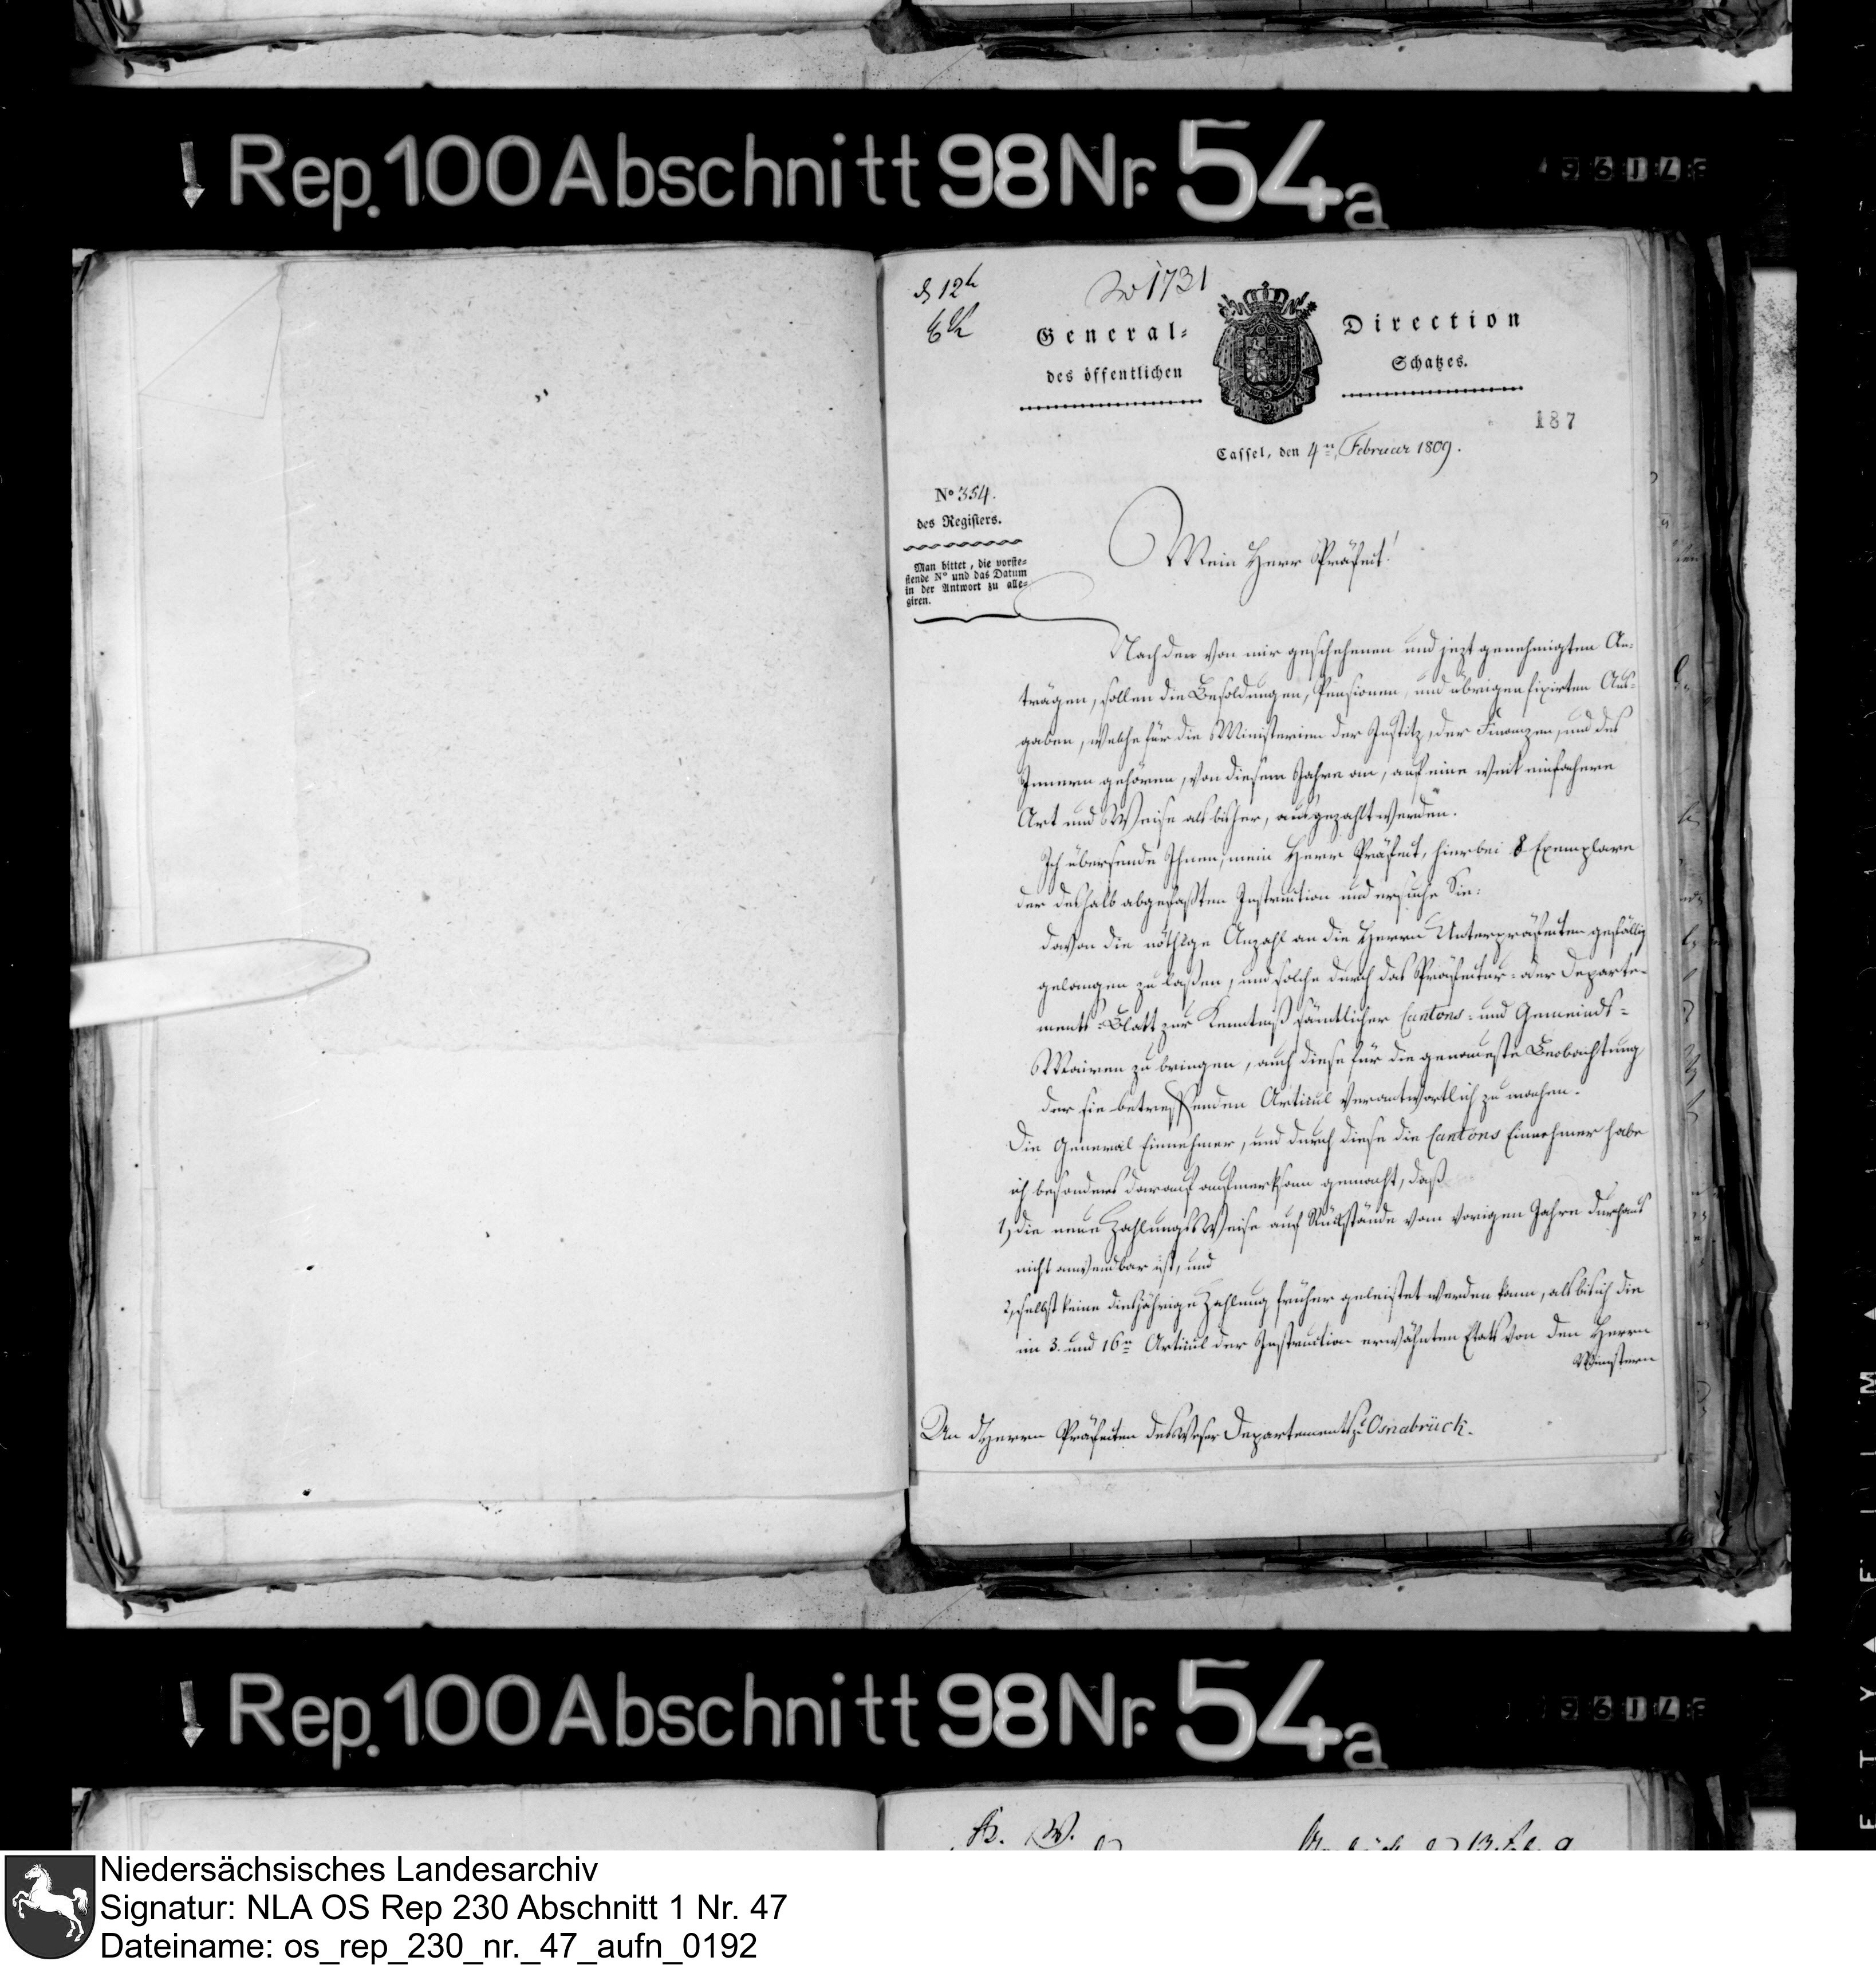 Rep. 100 Abschnitt 98 Nr. 54a
1731
General-Direction
des öffentlichen Schatzes.
187
Cassel, den 4ten Februar 1809.
No 354.
des Registers.
Man bittet, die vorste-
hende No und das Datum
in der Antwort zu alle-
giren.
Mein Herr Präfect!
Nach den von mir geschehenen und jezt genehmigten An-
trägen, sollen die Besoldungen, Pensionen, und übrigen fixirten Aus-
gaben, welche für die Ministerien der Justitz, der Finanzen, und des
Innern gehören, von diesem Jahre an, auf eine weit einfachere
Art und Weise als bisher, ausgezahlt werden.
Ich übersende Ihnen, mein Herr Präfect, hierbei 8 Exemplare
der deshalb abgefaßten Instruction und ersuche Sie:
davon die nöthige Anzahl an die Herrn Unterpräfecten gefällig
gelangen zu laßen, und solche durch das Präfectur- oder Departe-
ments-Blatt zur Kenntniß sämtlicher Cantons- und Gemeinds-
Mairen zu bringen, auch diese für die genaueste Beobachtung
der sie betreffenden Articul verantwortlich zu machen.
Die General Einnehmer, und durch diese die Cantons Einnehmer habe
ich besonders darauf aufmerksam gemacht, daß
1, die neue Zahlungs Weise auf Rückstände vom vorigen Jahre durchaus
nicht anwendbar ist, und
2, selbst keine diesjährige Zahlung früher geleistet werden kann, als bis ich die
im 3. und 16n Articul der Instruction erwähnten Etats von den Herrn
Ministern
An d Herrn Präfecten des Weser Departements zu Osnabrück.
Rep. 100 Abschnitt 98 Nr. 54a
Niedersächsisches Landesarchiv
Signatur: NLA OS Rep 230 Abschnitt 1 Nr. 47
Dateiname: os_rep_230_nr._47_aufn_0192